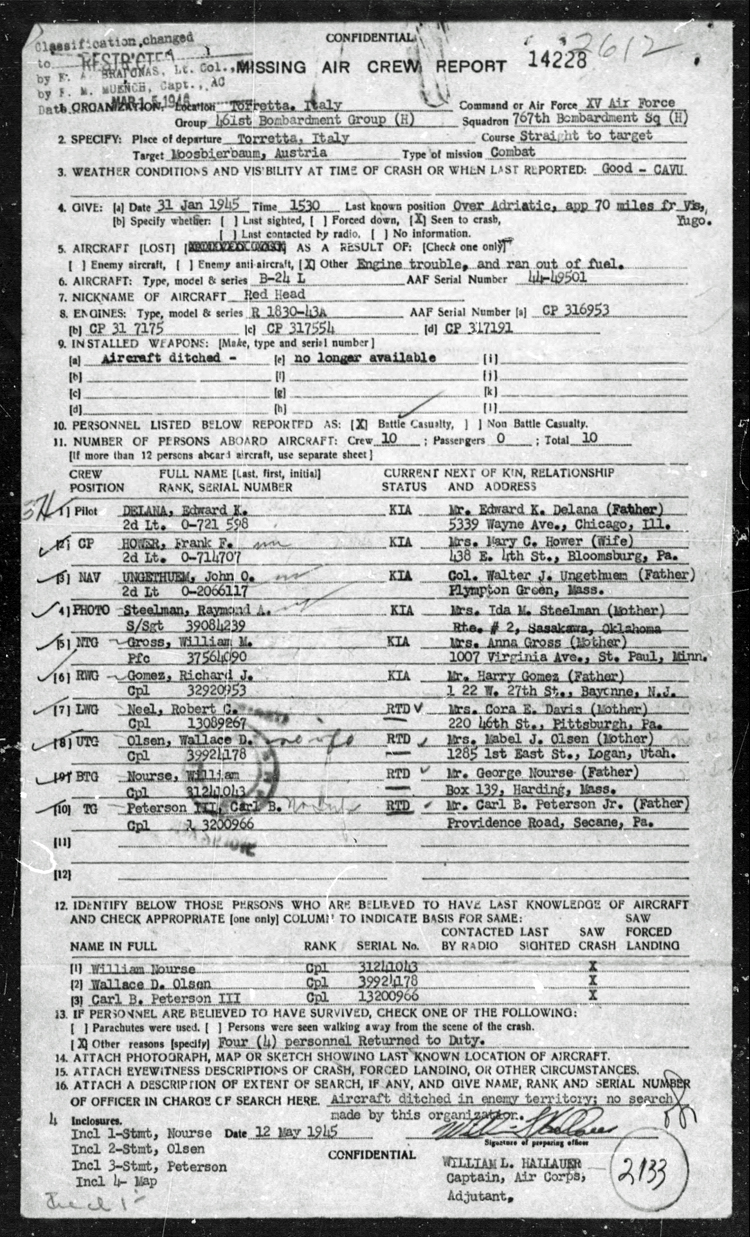 Classification changed
to RESTRICTED
by E. A. BRATONAS, Lt. Col.,
by F. M. MUENCH, Capt., AC
Date MAR 15 1946
CONFIDENTIAL
MISSING AIR CREW REPORT
14228
2612
1. ORGANIZATION: Location Torretta, Italy Command or Air Force XV Air Force
Group 461st Bombardment Group (H) Squadron 767th Bombardment Sq (H)
2. SPECIFY: Place of departure Torretta, Italy Course Straight to target
Target Moosbierbaum, Austria Type of mission Combat
3. WEATHER CONDITIONS AND VISBILITY AT TIME OF CRASH OR WHEN LAST REPORTED: Good - CAVU
4. GIVE: [a] Date 31 Jan 1945 Time 1530 Last known position Over Adriatic, app 70 miles fr Vis,
[b] Specify whether: [ ] Last sighted, [ ] Forced down, [X] Seen to crash, Yugo.
[ ] Last contacted by radio. [ ] No information.
5. AIRCRAFT [LOST] AS A RESULT OF: [Check one only]
[ ] Enemy aircraft, [ ] Enemy anti-aircraft, [X] Other Engine trouble, and ran out of fuel.
6. AIRCRAFT: Type, model & series B-24 L AAF Serial Number 44-49501
7. NICKNAME OF AIRCRAFT Red Head
8. ENGINES: Type, model & series R 1830-43A AAF Serial Number [a] CP 316953
[b] CP 31 7175 [c] CP 317554 [d] CP 317191
9. INSTALLED WEAPONS: [Make, type and serial number]
[a] Aircraft ditched - [e] no longer available [i]
[b] [f] [j]
[c] [g] [k]
[d] [h] [l]
10. PERSONNEL LISTED BELOW REPORTED AS: [X] Battle Casualty, [ ] Non Battle Casualty.
11. NUMBER OF PERSONS ABOARD AIRCRAFT: Crew 10 ; Passengers 0 ; Total 10
[If more than 12 persons aboard aircraft, use separate sheet]
CREW FULL NAME [Last, first, initial] CURRENT NEXT OF KIN, RELATIONSHIP
POSITION RANK, SERIAL NUMBER STATUS AND ADDRESS
[1] Pilot DELANA, Edward K. KIA Mr. Edward K. Delana (Father)
2d Lt. O-721 598 5339 Wayne Ave., Chicago, Ill.
[2] CP HOWER, Frank F. KIA Mrs. Mary C. Hower (Wife)
2d Lt. O-714707 438 E. 4th St., Bloomsburg, Pa.
[3] NAV UNGETHUEM, John O. KIA Col. Walter J. Ungethuem (Father)
2d Lt O-2066117 Plympton Green, Mass.
[4] PHOTO Steelman, Raymond A. KIA Mrs. Ida M. Steelman (Mother)
S/Sgt 39084239 Rte. # 2, Sasakawa, Oklahoma
[5] NTG Gross, William M. KIA Mrs. Anna Gross (Mother)
Pfc 37564090 1007 Virginia Ave., St. Paul, Minn.
[6] RWG Gomez, Richard J. KIA Mr. Harry Gomez (Father)
Cpl 32920953 1 22 W. 27th St., Bayonne, N.J.
[7] LWG Neel, Robert C. RTD Mrs. Cora E. Davis (Mother)
Cpl 13089267 220 46th St., Pittsburgh, Pa.
[8] UTG Olsen, Wallace D. no info RTD Mrs. Mabel J. Olsen (Mother)
Cpl 39924178 1285 1st East St., Logan, Utah.
[9] BTG Nourse, William RTD Mr. George Nourse (Father)
Cpl 31241043 Box 139, Harding, Mass.
[10] TG Peterson III, Carl B. no info RTD Mr. Carl B. Peterson Jr. (Father)
Cpl 1 3200966 Providence Road, Secane, Pa.
[11]
[12]
12. IDENTIFY BELOW THOSE PERSONS WHO ARE BELIEVED TO HAVE LAST KNOWLEDGE OF AIRCRAFT
AND CHECK APPROPRIATE [one only] COLUMN TO INDICATE BASIS FOR SAME: SAW
CONTACTED LAST SAW FORCED
NAME IN FULL RANK SERIAL No. BY RADIO SIGHTED CRASH LANDING
[1] William Nourse Cpl 31241043 X
[2] Wallace D. Olsen Cpl 39924178 X
[3] Carl B. Peterson III Cpl 13200966 X
13. IF PERSONNEL ARE BELIEVED TO HAVE SURVIVED, CHECK ONE OF THE FOLLOWING:
[ ] Parachutes were used. [ ] Persons were seen walking away from the scene of the crash.
[X] Other reasons [specify] Four (4) personnel Returned to Duty.
14. ATTACH PHOTOGRAPH, MAP OR SKETCH SHOWING LAST KNOWN LOCATION OF AIRCRAFT.
15. ATTACH EYEWITNESS DESCRIPTIONS OF CRASH, FORCED LANDING, OR OTHER CIRCUMSTANCES.
16. ATTACH A DESCRIPTION OF EXTENT OF SEARCH, IF ANY, AND GIVE NAME, RANK AND SERIAL NUMBER
OF OFFICER IN CHARGE OF SEARCH HERE. Aircraft ditched in enemy territory; no search
made by this organization.
4 Inclosures.
Incl 1-Stmt, Nourse Date 12 May 1945 William L Hallauer
Signature of preparing officer
Incl 2-Stmt, Olsen CONFIDENTIAL
Incl 3-Stmt, Peterson WILLIAM L. HALLAUER
Incl 4- Map Captain, Air Corps,
Adjutant.
2133